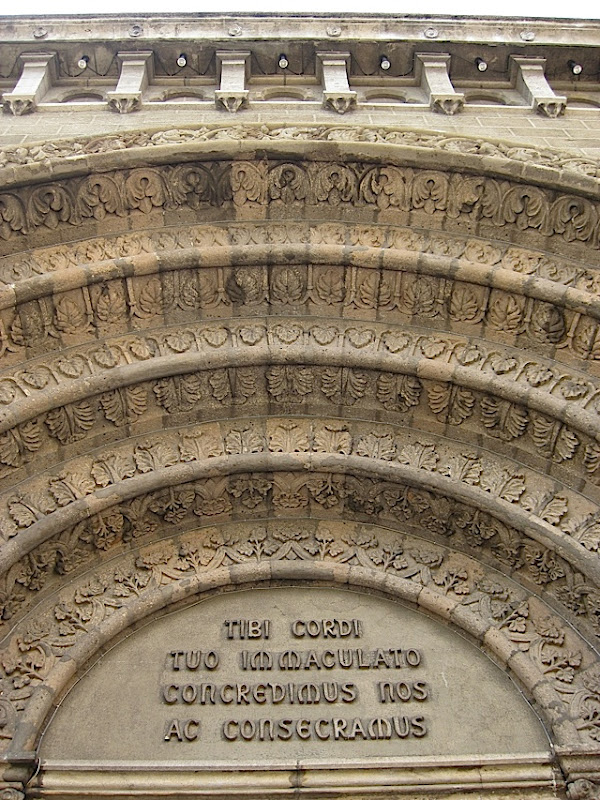 TIBI CORDI
TUO IMMACULATO
CONCREDIMUS NOS
AC CONSECRAMUS